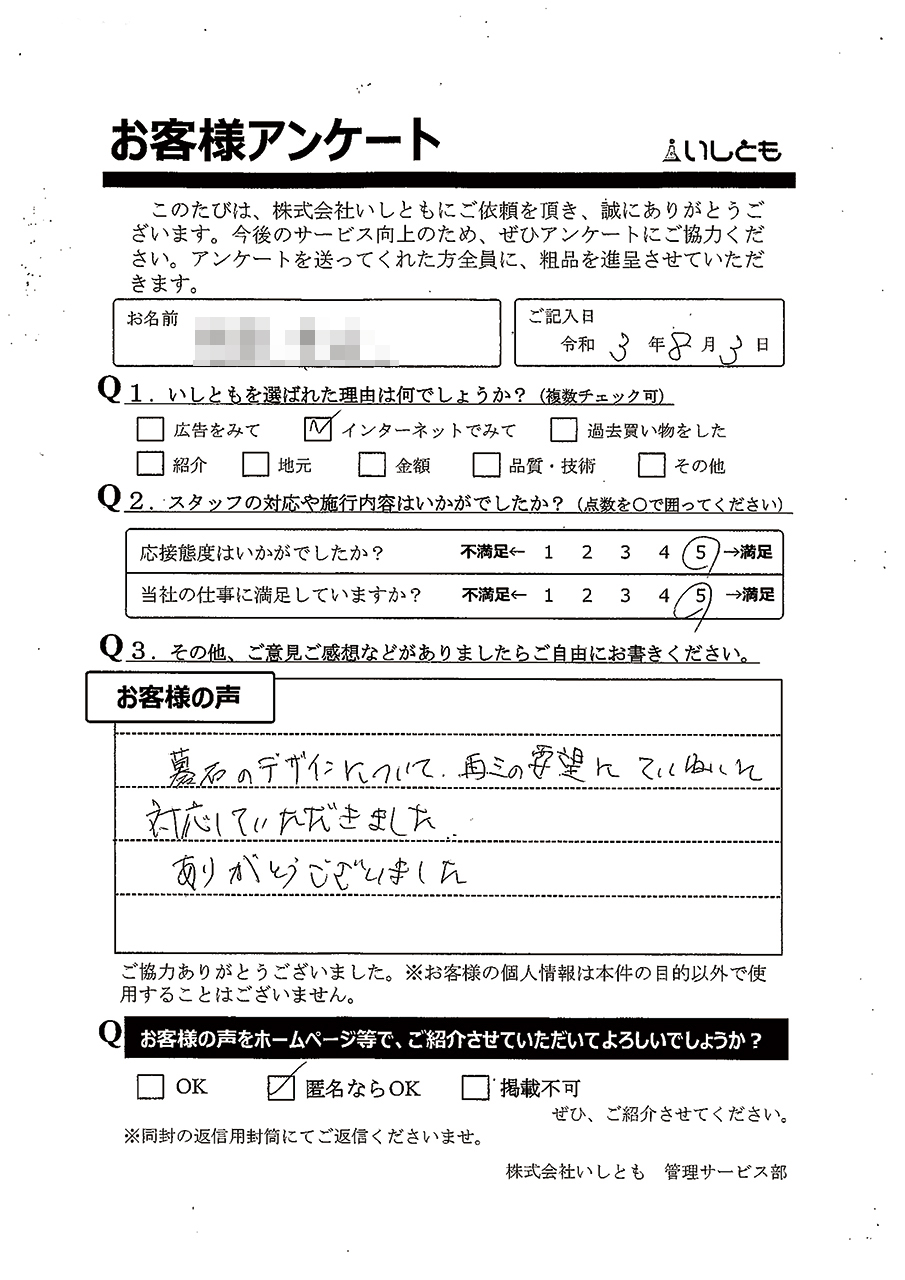 お客様アンケート
いしとも
このたびは、株式会社いしともにご依頼を頂き、誠にありがとうご
ざいます。今後のサービス向上のため、ぜひアンケートにご協力くだ
さい。アンケートを送ってくれた方全員に、粗品を進呈させていただ
きます。
お名前
ご記入日
令和 3 年 8 月 3 日
Q1．いしともを選ばれた理由は何でしょうか？（複数チェック可）
広告をみて インターネットでみて 過去買い物をした
紹介 地元 金額 品質・技術 その他
Q2．スタッフの対応や施行内容はいかがでしたか？（点数を〇で囲ってください）
応接態度はいかがでしたか？ 不満足← 1 2 3 4 5 →満足
当社の仕事に満足していますか？ 不満足← 1 2 3 4 5 →満足
Q3．その他、ご意見ご感想などがありましたらご自由にお書きください。
お客様の声
墓石のデザインについて、再三の要望にていねいに
対応していただきました
ありがとうございました
ご協力ありがとうございました。※お客様の個人情報は本件の目的以外で使
用することはございません。
Q お客様の声をホームページ等で、ご紹介させていただいてよろしいでしょうか？
OK 匿名ならOK 掲載不可
ぜひ、ご紹介させてください。
※同封の返信用封筒にてご返信くださいませ。
株式会社いしとも 管理サービス部